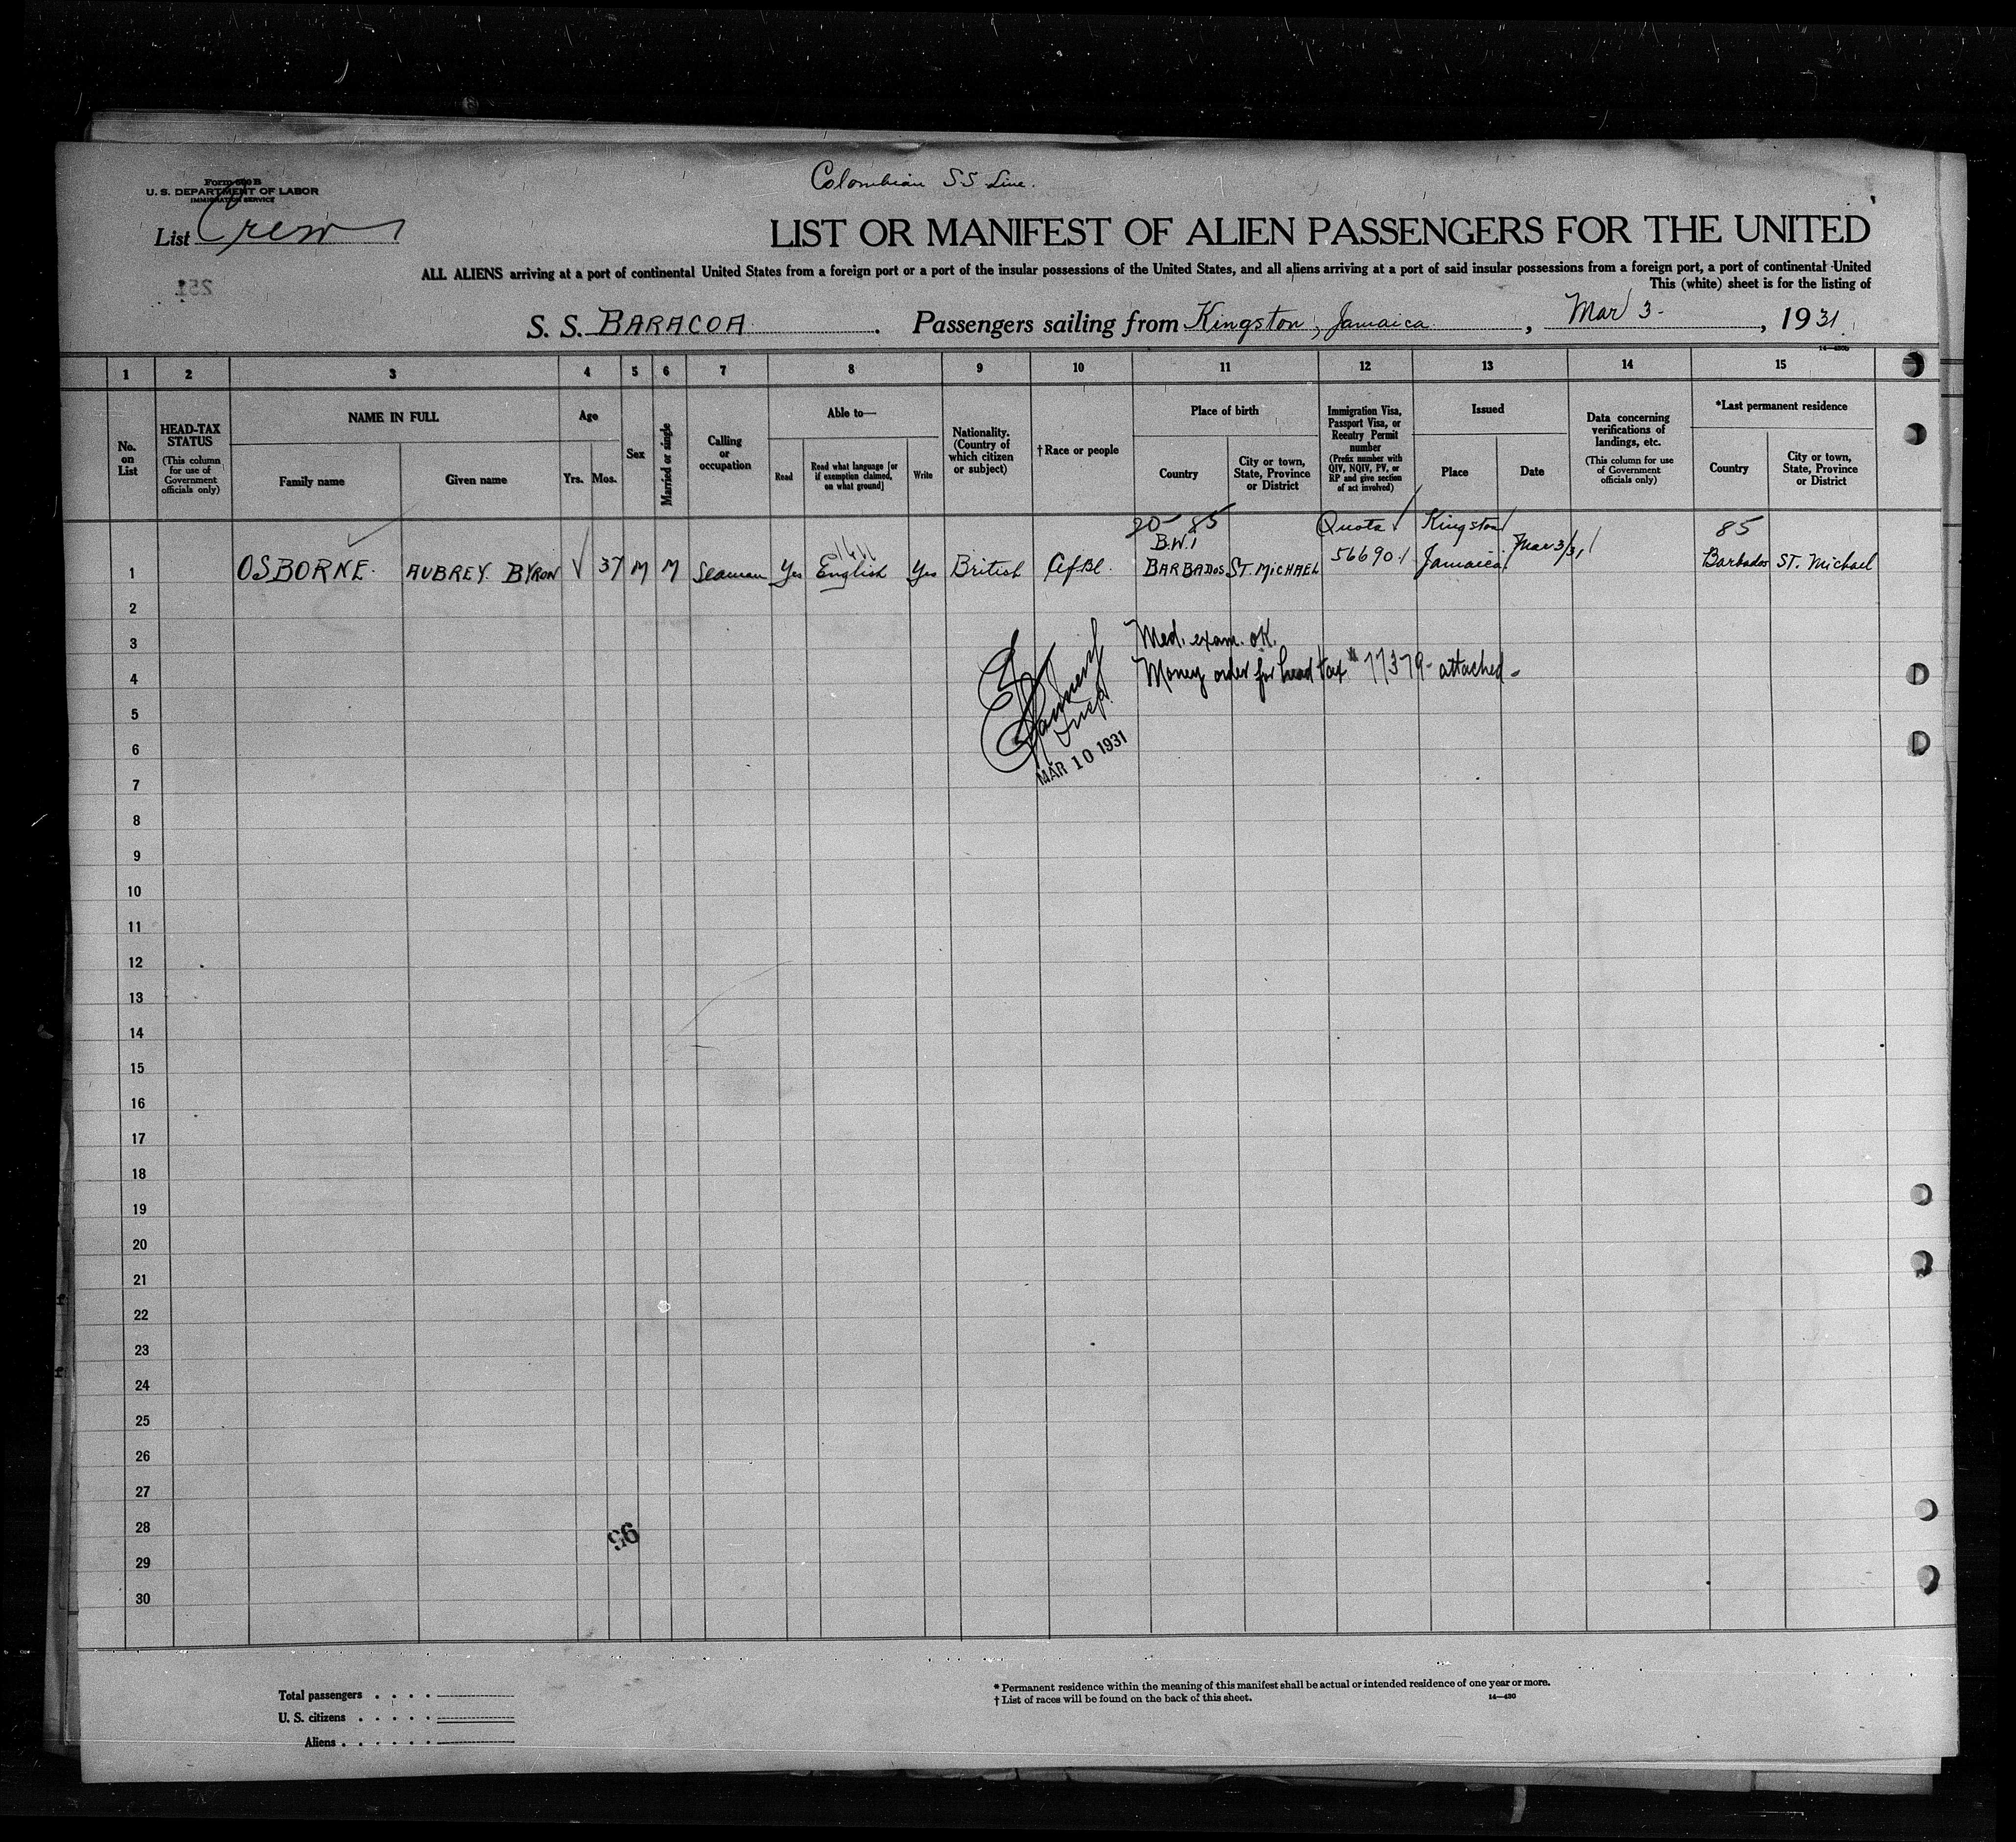 Colombian S S Line.
Form 500 B
U. S. DEPARTMENT OF LABOR
IMMIGRATION SERVICE
List Crew
LIST OR MANIFEST OF ALIEN PASSENGERS FOR THE UNITED
251
ALL ALIENS arriving at a port of continental United States from a foreign port or a port of the insular possessions of the United States, and all aliens arriving at a port of said insular possessions from a foreign port, a port of continental United
This (white) sheet is for the listing of
S. S. BARACOA. Passengers sailing from Kingston, Jamaica, Mar 3-, 1931.
1 2 3 4 5 6 7 8 9 10 11 12 13 14 15
No. on List
HEAD-TAX STATUS
(This column for use of Government officials only)
NAME IN FULL
Family name
Given name
Age
Yrs. Mos.
Sex
Married or single
Calling or occupation
Able to—
Read
Read what language [or if exemption claimed, on what ground]
Write
Nationality. (Country of which citizen or subject)
† Race or people
Place of birth
Country
City or town, State, Province or District
Immigration Visa, Passport Visa, or Reentry Permit number
(Prefix number with QIV, NQIV, PV, or RP and give section of act involved)
Issued
Place
Date
Data concerning verifications of landings, etc.
(This column for use of Government officials only)
*Last permanent residence
Country
City or town, State, Province or District
20- 85 Quota Kingston 85
B.W.I
1 OSBORNE. AUBREY. BYRON 37 M M Seaman Yes English Yes British Af Bl. BARBADOS ST. MICHAEL 56690 Jamaica Mar 3/31 Barbados ST. Michael
2
3 Med. exam. OK.
4 Money order for head tax # 77379- attached-
Insp.
5
6
MAR 10 1931
7
8
9
10
11
12
13
14
15
16
17
18
19
20
21
22
23
24
25
26
27
28
29
30
Total passengers . . . .
U. S. citizens . . . . .
Aliens . . . . . .
* Permanent residence within the meaning of this manifest shall be actual or intended residence of one year or more.
† List of races will be found on the back of this sheet.
14—430